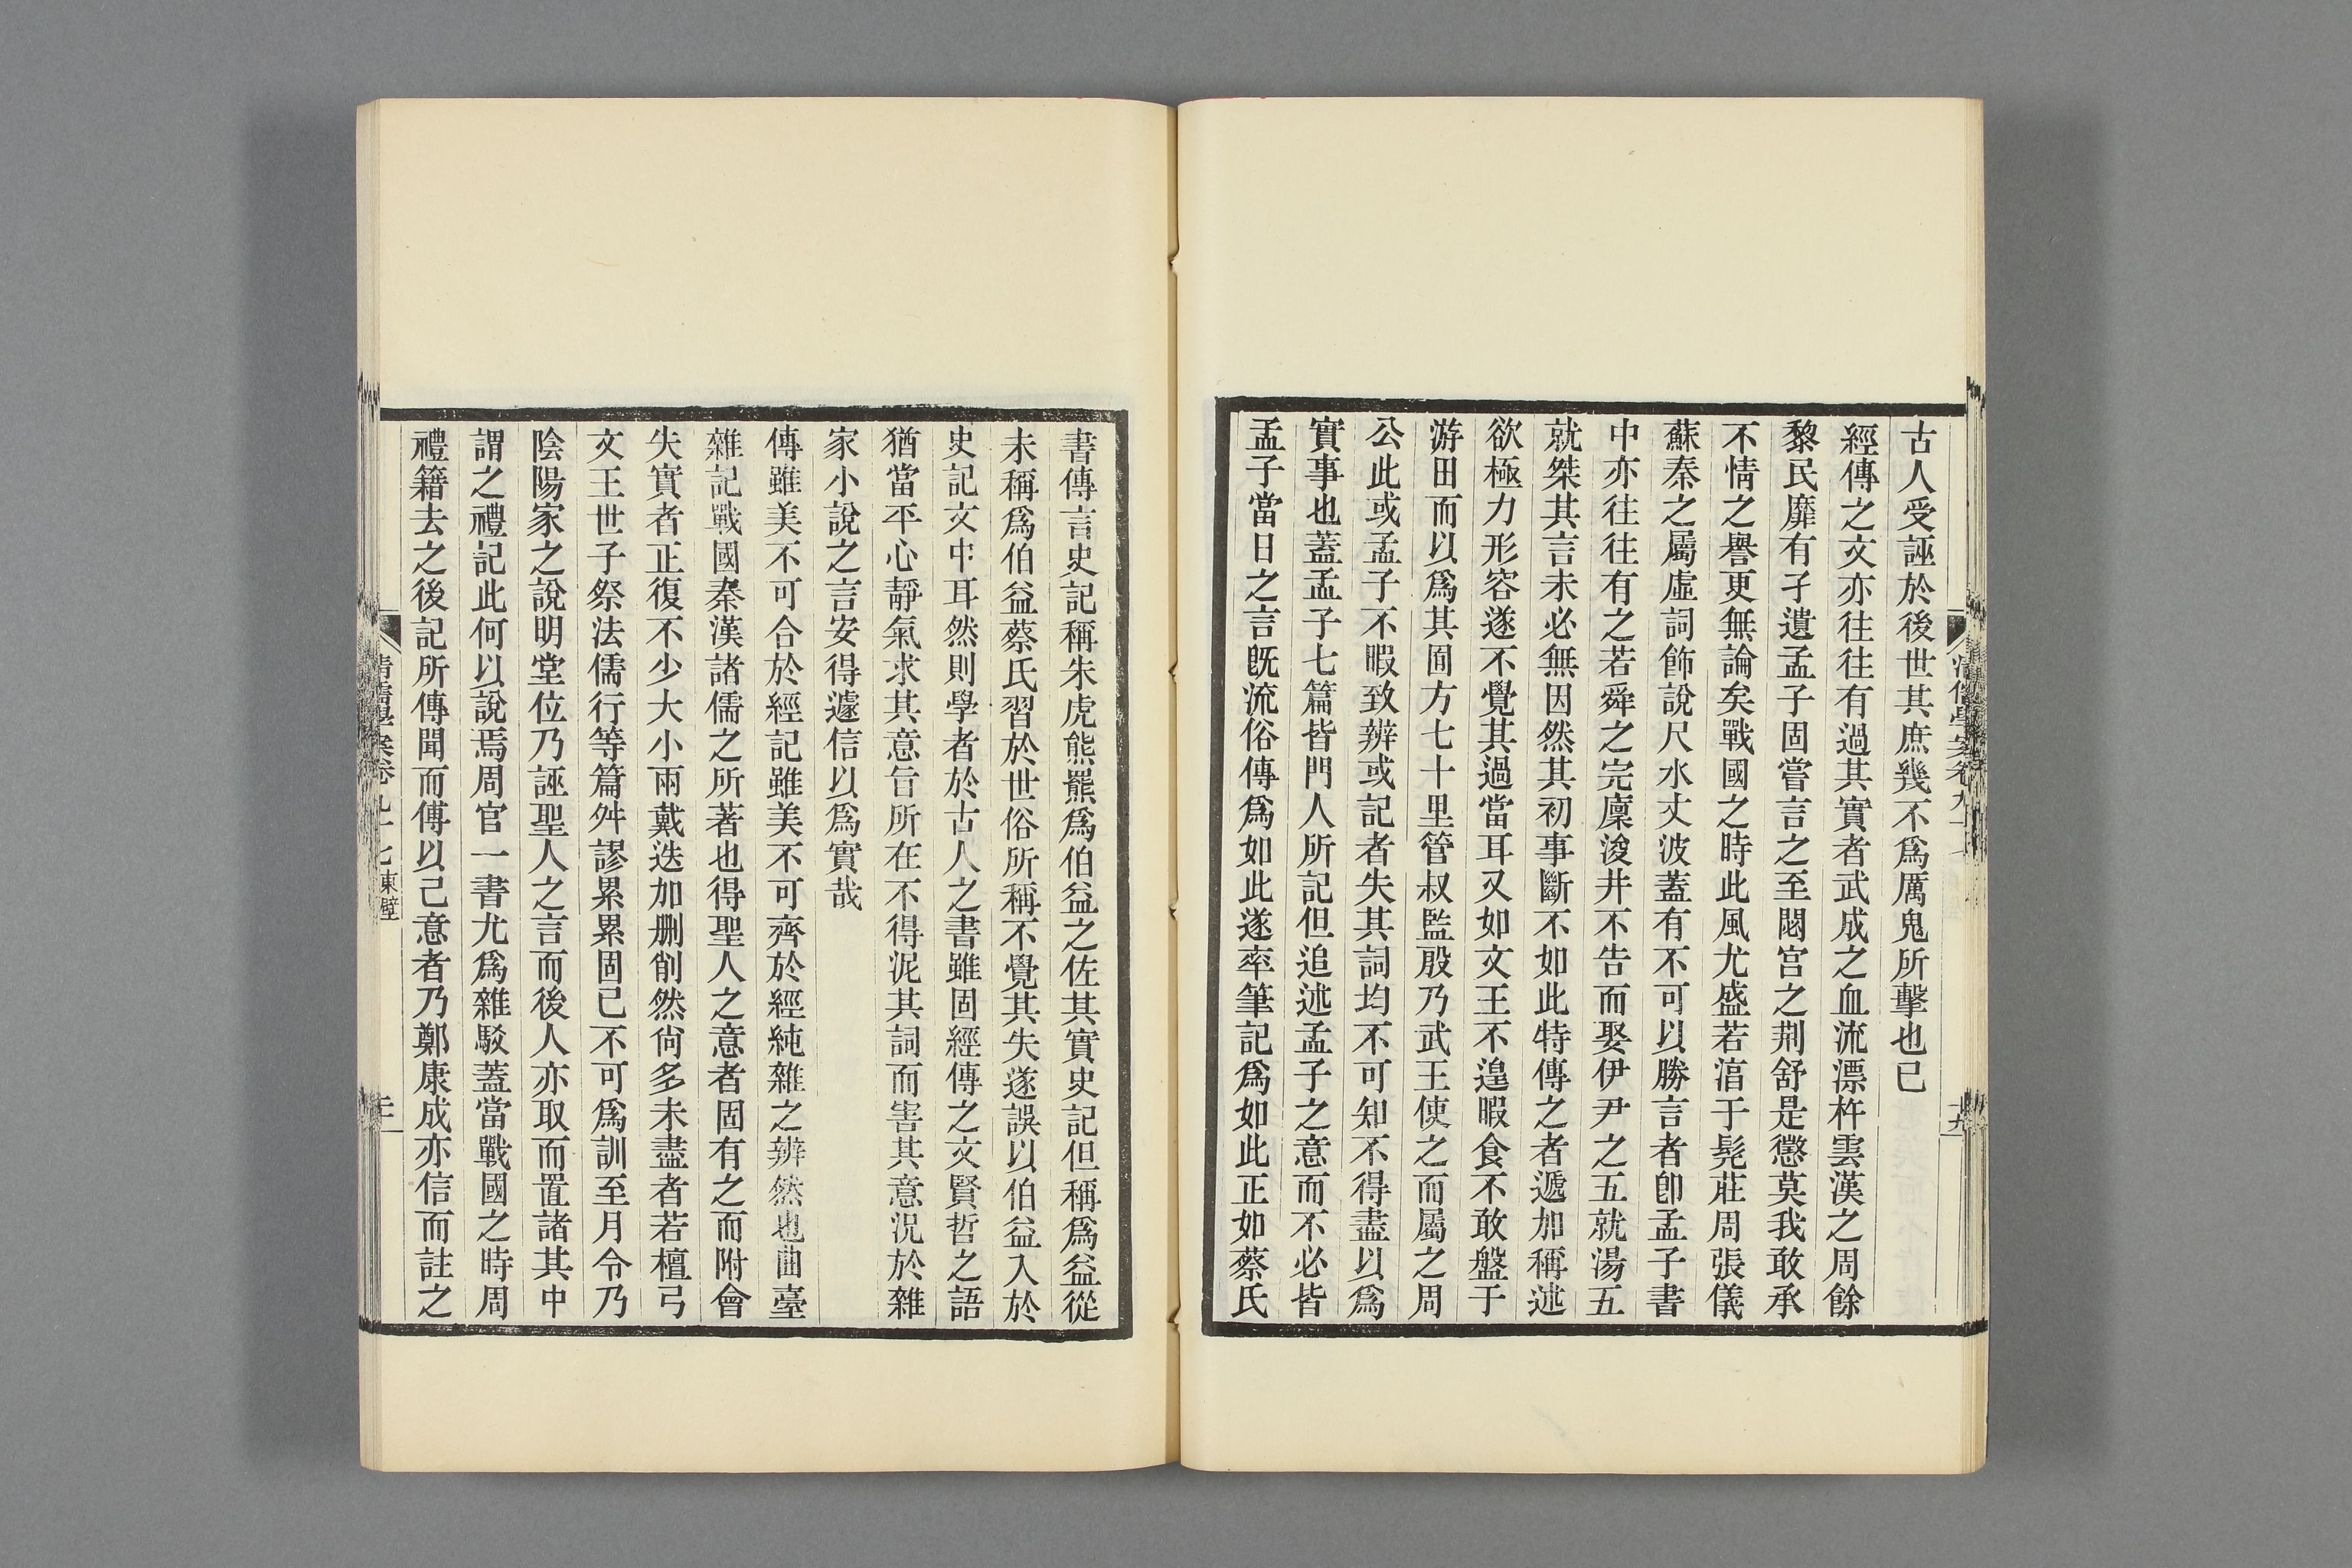 古人受誣於後世其庶幾不爲厲鬼所擊也已
經傳之文亦往往有過其實者武成之血流漂杵雲漢之周餘
黎民靡有孑遺孟子固嘗言之至閟宮之荆舒是懲莫我敢承
不情之譽更無論矣戰國之時此風尤盛若淳于髡莊周張儀
蘇秦之屬虛詞飾說尺水丈波蓋有不可以勝言者卽孟子書
中亦往往有之若舜之完廩浚井不告而娶伊尹之五就湯五
就桀其言未必無因然其初事斷不如此特傳之者遞加稱述
欲極力形容遂不覺其過當耳又如文王不遑暇食不敢盤于
游田而以爲其囿方七十里管叔監殷乃武王使之而屬之周
公此或孟子不暇致辨或記者失其詞均不可知不得盡以爲
實事也蓋孟子七篇皆門人所記但追述孟子之意而不必皆
孟子當日之言旣流俗傳爲如此遂率筆記爲如此正如蔡氏
書傳言史記稱朱虎熊羆爲伯益之佐其實史記但稱爲益從
未稱爲伯益蔡氏習於世俗所稱不覺其失遂誤以伯益入於
史記文中耳然則學者於古人之書雖固經傳之文賢哲之語
猶當平心靜氣求其意旨所在不得泥其詞而害其意況於雜
家小說之言安得遽信以爲實哉
傳雖美不可合於經記雖美不可齊於經純雜之辨然也曲臺
雜記戰國秦漢諸儒之所著也得聖人之意者固有之而附會
失實者正復不少大小兩戴迭加刪削然尙多未盡者若檀弓
文王世子祭法儒行等篇舛謬累累固已不可爲訓至月令乃
陰陽家之說明堂位乃誣聖人之言而後人亦取而置諸其中
謂之禮記此何以說焉周官一書尤爲雜駁蓋當戰國之時周
禮籍去之後記所傳聞而傅以己意者乃鄭康成亦信而註之
清儒學案卷九十七 東壁